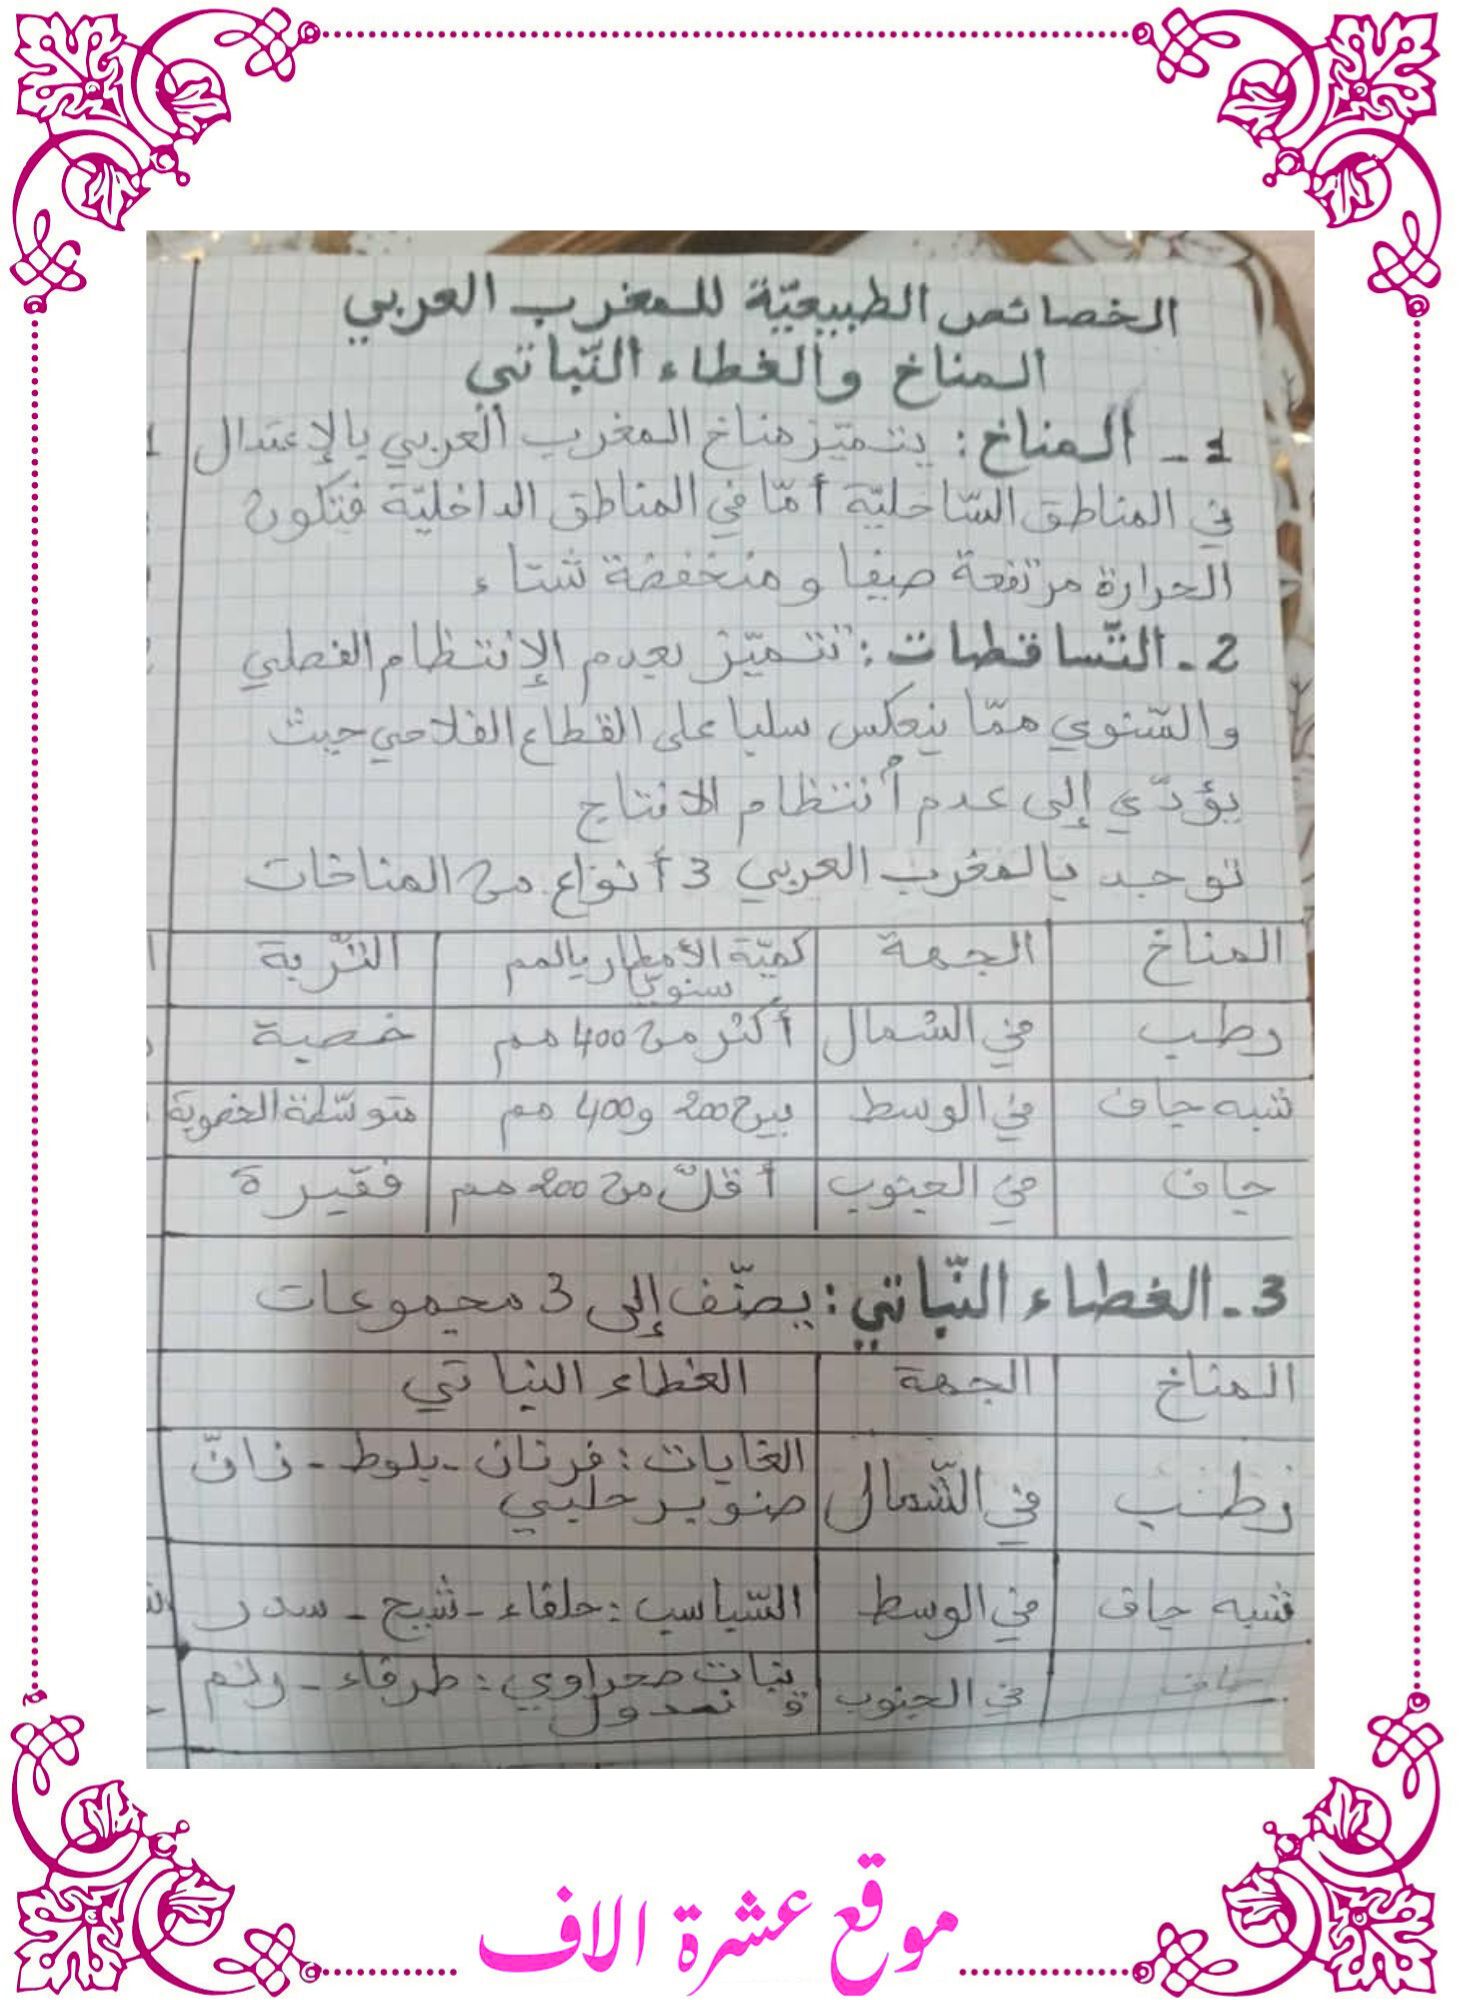 الخصائص الطبيعيّة للمغرب العربي
المناخ والغطاء النّباتي
1 - المناخ : يتميّز مناخ المغرب العربي بالإعتدال
في المناطق السّاحليّة أمّا في المناطق الداخليّة فتكون
الحرارة مرتفعة صيفا و منخفضة شتاء
2 - التّساقطات : تتميّز بعدم الإنتظام الفصلي
والسّنوي ممّا ينعكس سلبا على القطاع الفلاحي حيث
يؤدّي إلى عدم أنتظام الانتاج
توجد بالمغرب العربي 3 أنواع من المناخات
المناخ الجهة كميّة الأمطار بالمم سنويّا التّربة
رطب في الشمال أكثر من 400 مم خصبة
شبه جاف في الوسط بين 200 و 400 مم متوسّطة الخصوبة
جاف في الجنوب أقلّ من 200 مم فقيرة
3 - الغطاء النّباتي : يصنّف إلى 3 مجموعات
المناخ الجهة الغطاء النباتي
رطب في الشّمال الغابات : فرنان - بلوط - زانّ
صنوبر حلبي
شبه جاف في الوسط السّباسب : حلفاء - شيح - سدر
جاف في الجنوب نبات صحراوي : طرفاء - رتم
موقع عشرة الاف